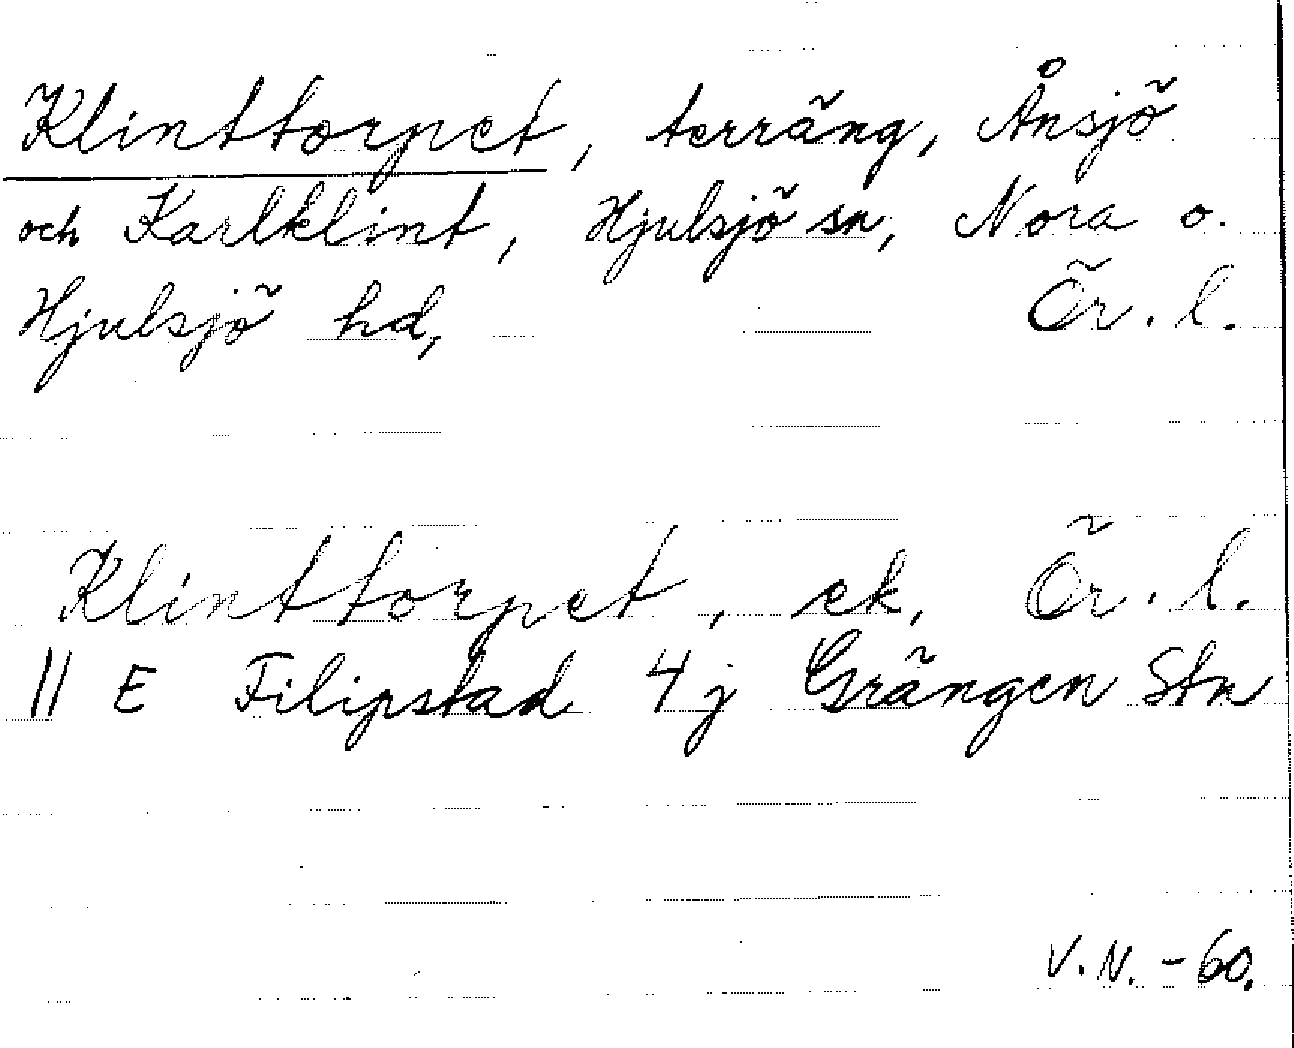 Klinttorpet, terräng, Ånsjö
och Karlklint, Hjulsjö sn, Nora o.
Hjulsjö hd, Ör. l.
Klinttorpet, ek, Ör. l.
11 E Filipstad 4j Grängen Stn
V.N. -60.